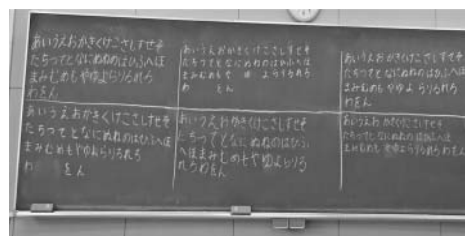 あいうえおかきくけこさしすせそ
たちつてとなにぬねのはひふへほ
まみむめもやゆよらりるれろ
わをん
あいうえおかきくけこさしすせそ
たちつてとなにぬねのはひふへほ
まみむめもや ゆ よらりるれろ
わ をん
あいうえおかきくけこさしすせそ
たちつてとなにぬねのはひふへほ
まみむめもやゆよ らりるれろ
わをん
あいうえおかきくけこさしすせそ
たちつてとなにぬねのはひふへほ
まみむめもやゆよらりるれろ
わ をん
あいうえおかきくけこさしすせそ
たちつてとなにぬねのはひふ
へほまみむめもやゆよらりる
れろわをん
あいうえおかきくけこさしすせそ
たちつてとなにぬねのはひふへほ
まみむめもやゆよらりるれろわをん